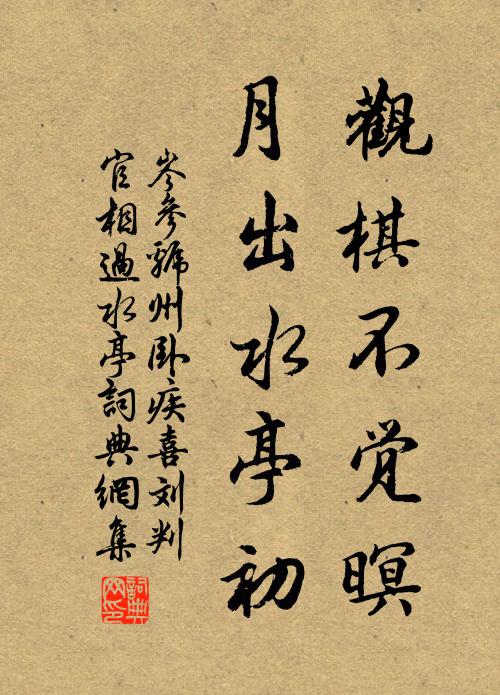 觀棋不觉暝
月出水亭初
岑參虢州卧疾喜刘判
官相過水亭詞典網集
詞典
网印